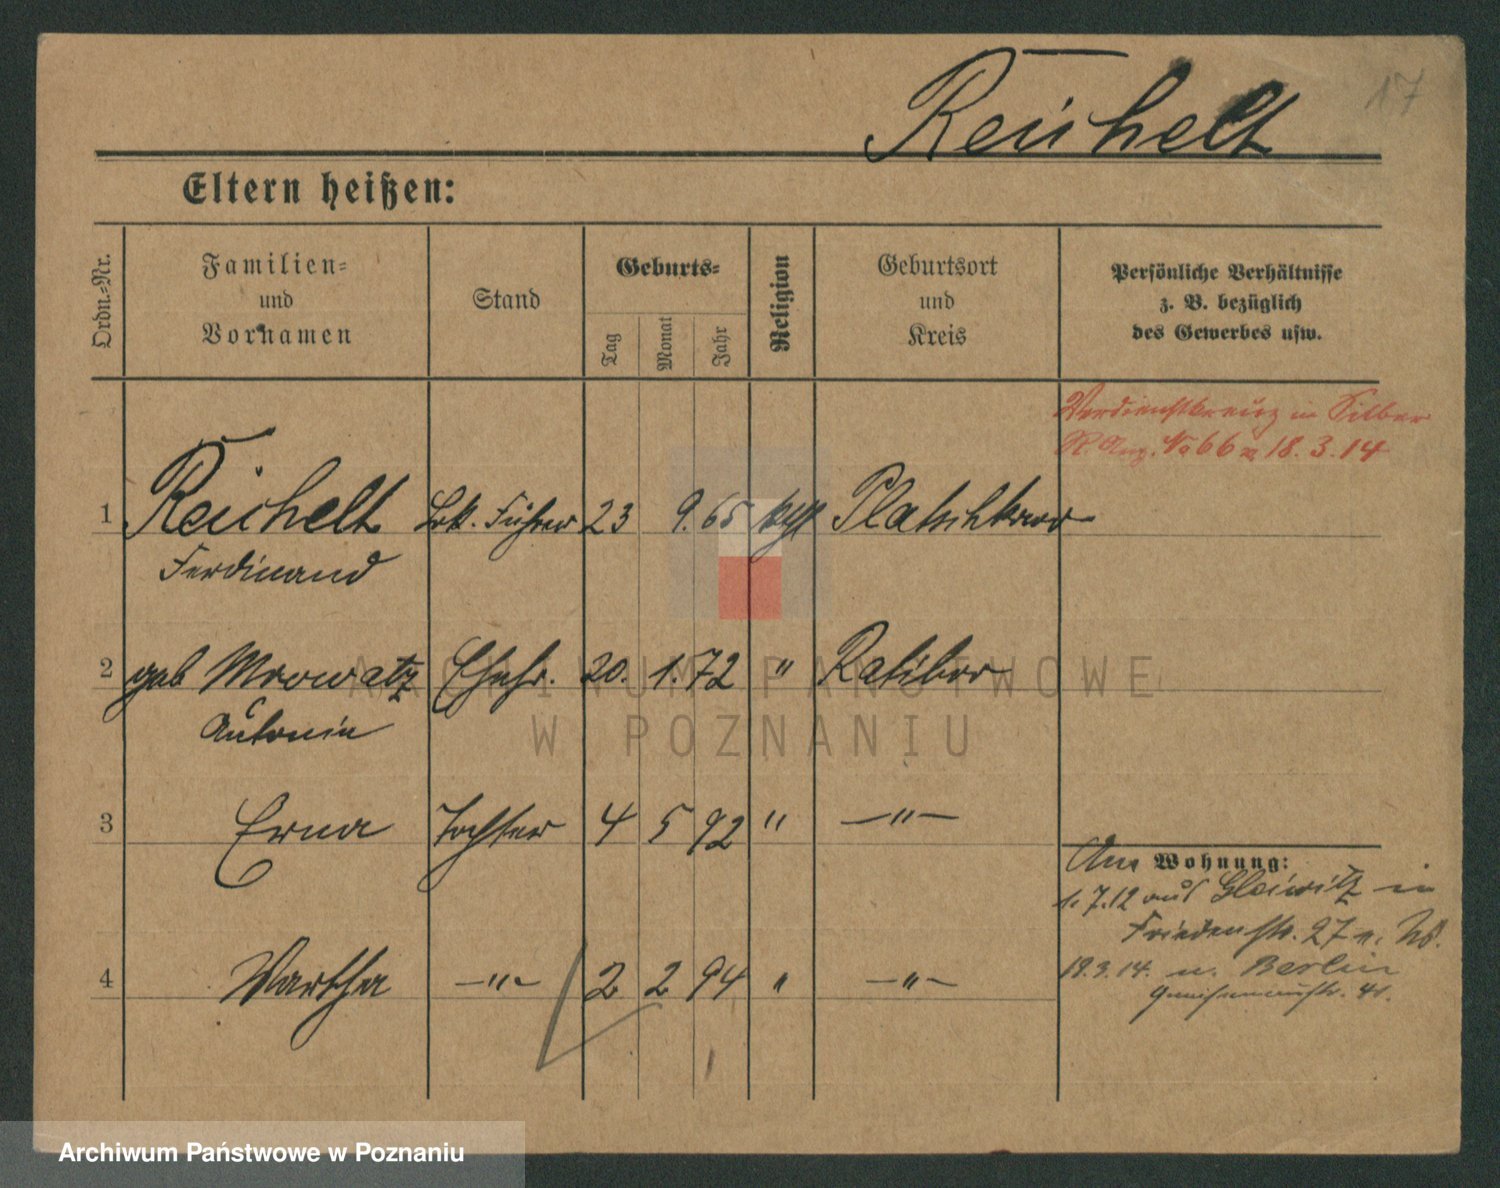 17
Reichelt
Eltern heißen:
Ordn.-Nr.
Familien-
und
Vornamen
Stand
Geburts-
Tag
Monat
Jahr
Religion
Geburtsort
und
Kreis
Persönliche Verhältnisse
z. B. bezüglich
des Gewerbes usw.
Verdienstkreuz in Silber
R. Anz. No 66 v. 18. 3. 14
1 Reichelt Lok. Führer 23 9. 65 kath
Ferdinand
2 geb Mrowatz Ehefr. 20. 1. 72 " Ratibor
Antonie
3 Erna Tochter 4 5 92 " —"—
4 Martha —"— 2 2 94 " —"—
Am Wohnung:
1. 7.12 aus Gleiwitz in
Friedenstr. 27
19.3.14. n. Berlin
Gneisenaustr.
ARCHIWUM PAŃSTWOWE
W POZNANIU
Archiwum Państwowe w Poznaniu